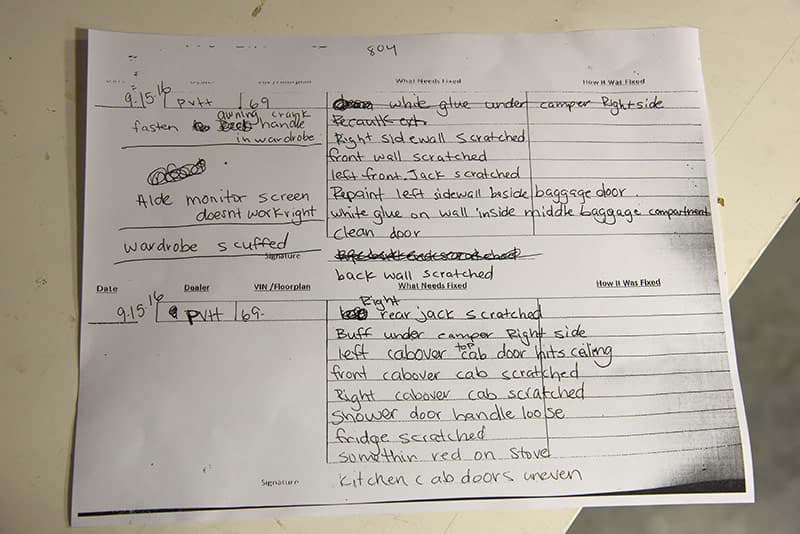 804
What Needs Fixed How It Was Fixed
9-15-16 PVTT 69 white glue under camper Right side
awning crank
fasten handle
Recaulk ext.
in wardrobe
Right sidewall scratched
front wall scratched
left front Jack scratched
Alde monitor screen
doesnt work right
Repaint left sidewall beside baggage door
white glue on wall inside middle baggage compartment
clean door
wardrobe scuffed
Signature
back wall scratched
Date Dealer VIN /Floorplan What Needs Fixed How It Was Fixed
9-15-16 PVTT 69-
Right
rear jack scratched
Buff under camper Right side
top
left cabover cab door hits ceiling
front cabover cab scratched
Right cabover cab scratched
shower door handle loose
fridge scratched
sumthin red on stove
Signature
Kitchen cab doors uneven